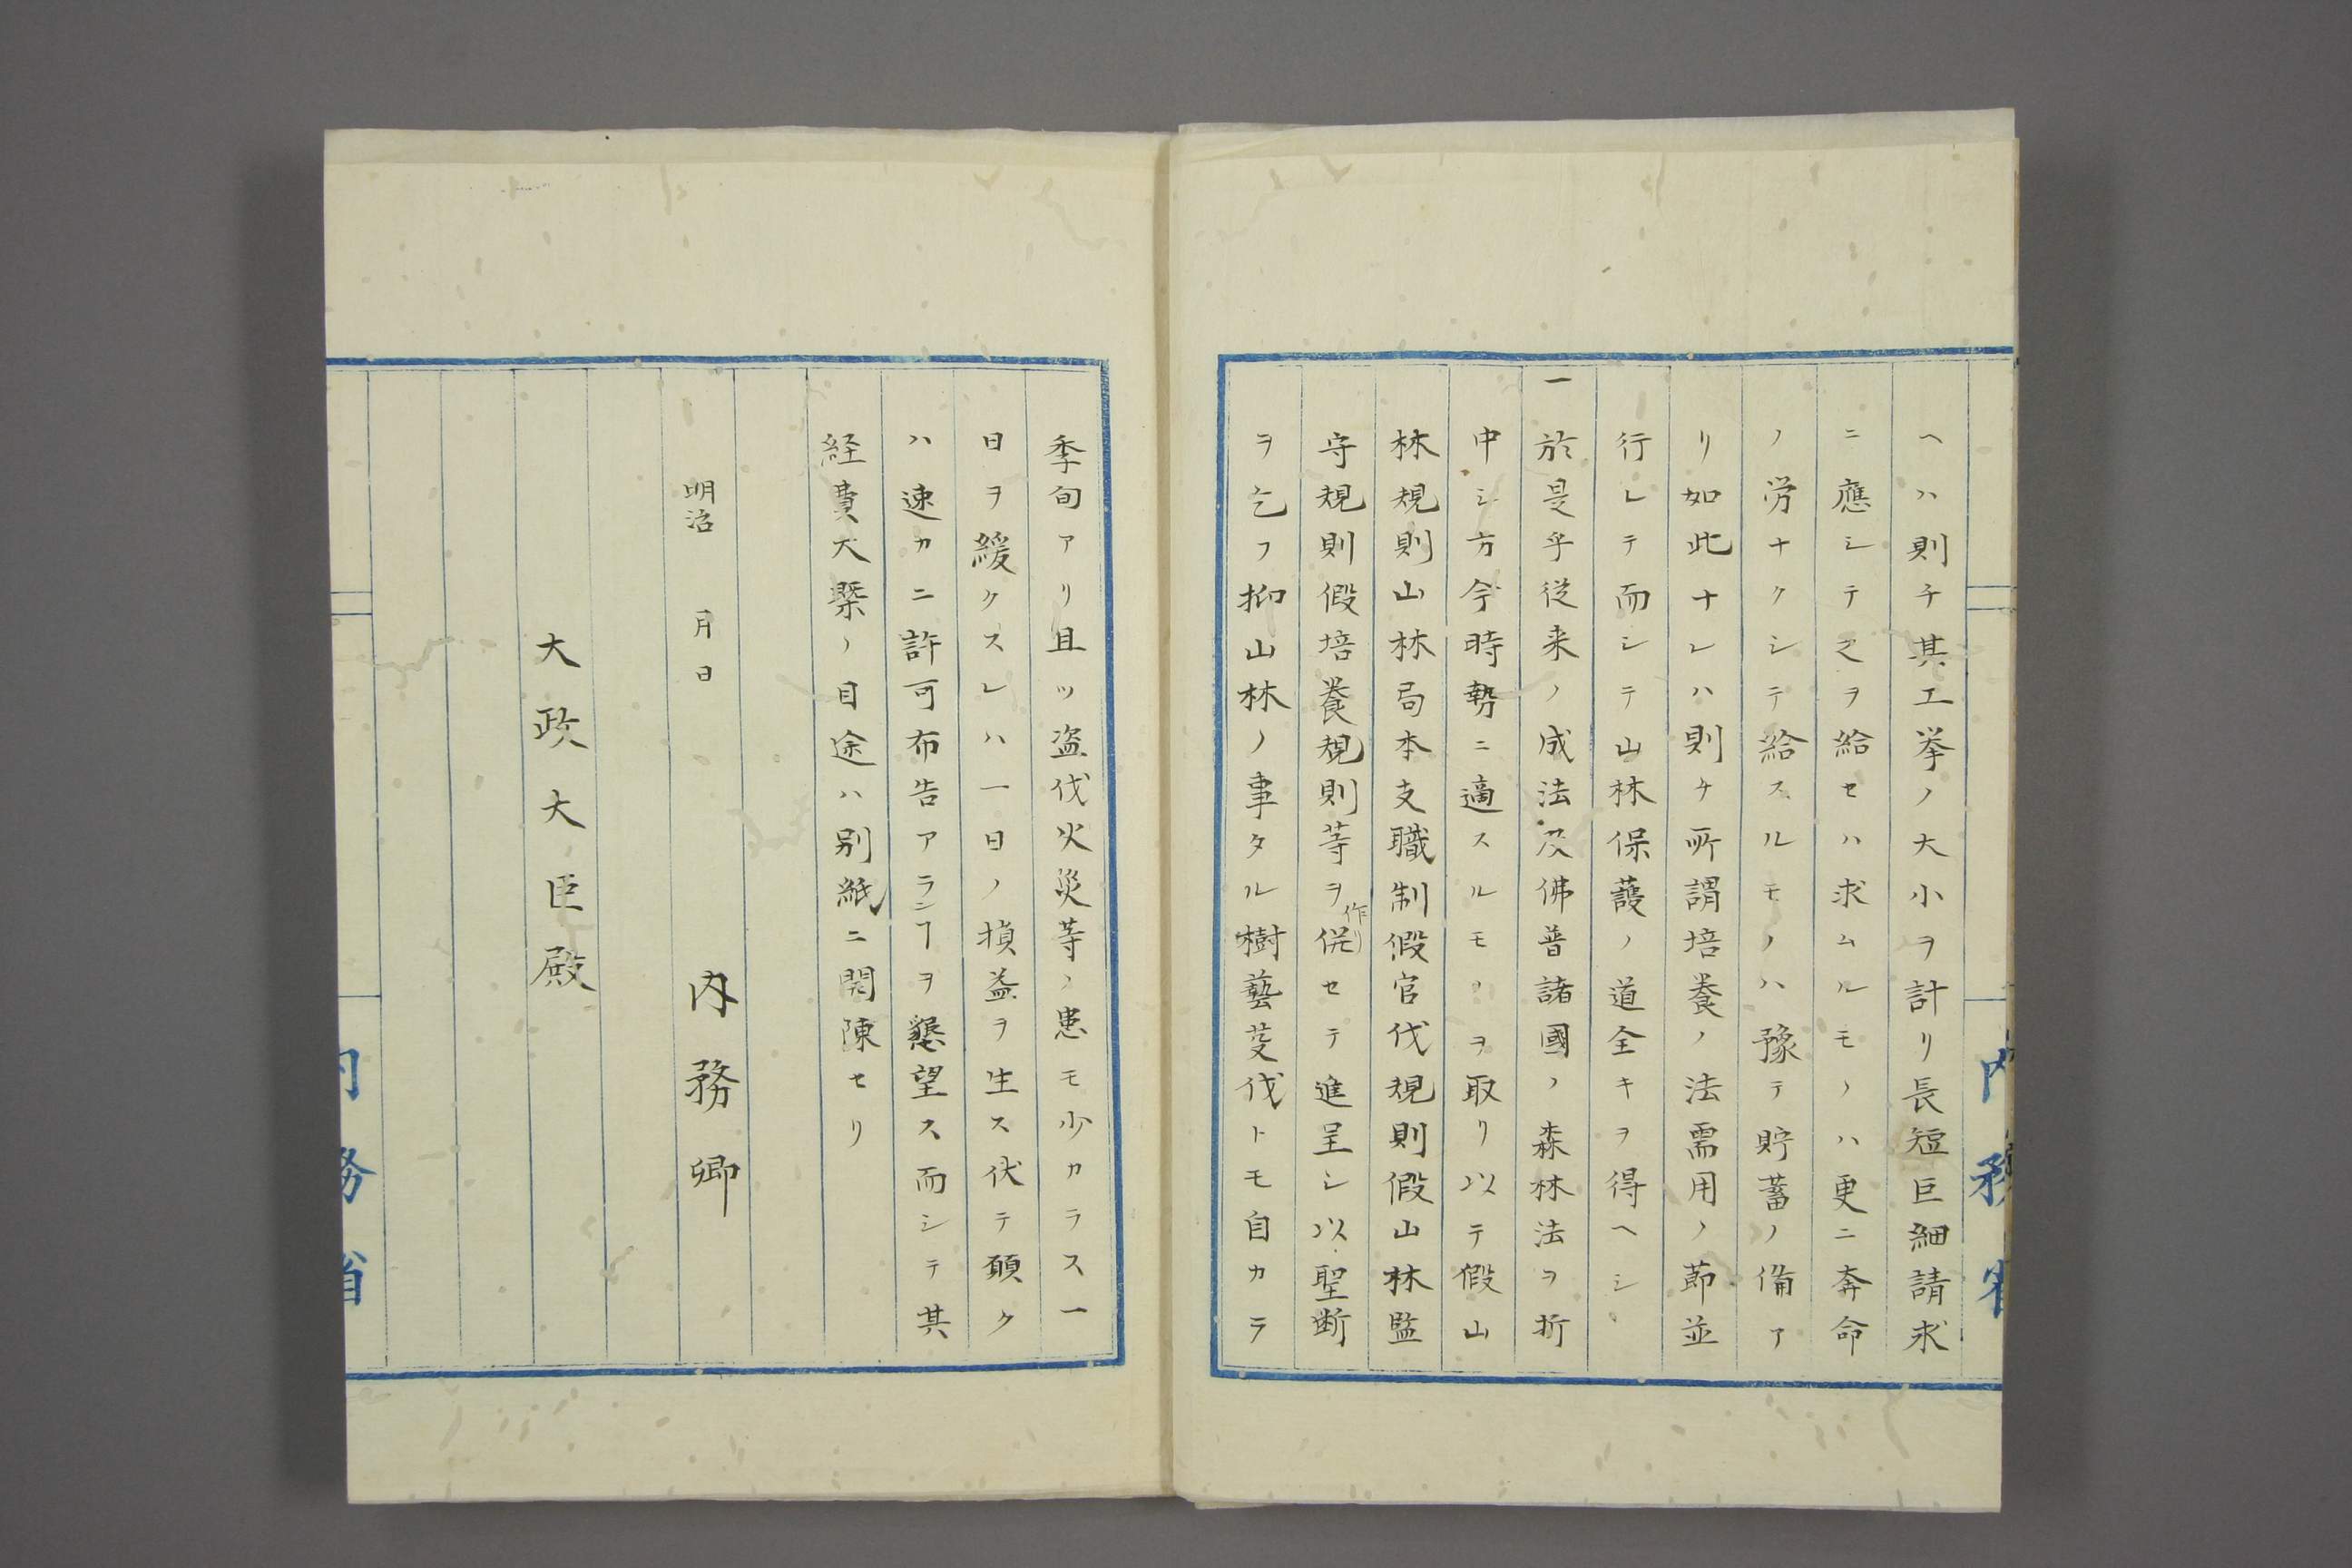 ヘハ則チ其工挙ノ大小ヲ計リ長短巨細請求
ニ應シテ之ヲ給セハ求ムルモノハ更ニ奔命
ノ労ナクシテ給スルモノハ豫テ貯蓄ノ備ア
リ如此ナレハ則チ所謂培養ノ法需用ノ節並
行レテ而シテ山林保護ノ道全キヲ得ヘシ
一於是乎従来ノ成法及佛普諸國ノ森林法ヲ折
中シ方今時勢ニ適スルモノヲ取リ以テ假山
林規則山林局本支職制假官伐規則假山林監
守規則假培養規則等ヲ作リ併セテ進呈シ以聖断
ヲ乞フ抑山林ノ事タル樹藝芟伐トモ自カラ
季旬アリ且ツ盗伐火災等ノ患モ少カラス一
日ヲ緩クスレハ一日ノ損益ヲ生ス伏テ願ク
ハ速カニ許可布告アランヿヲ懇望ス而シテ其
経費大槩ノ目途ハ別紙ニ開陳セリ
明治 一月 日 内務卿
大政大臣殿
内務省
内務省